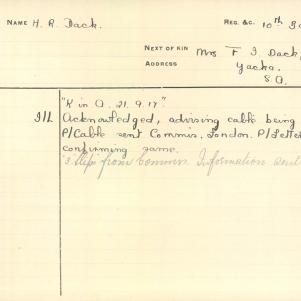 NAME H. R. Dack. REG. &C. 10th
NEXT OF KIN Mrs F J Dack,
ADDRESS Yacka.
S.A.
"K in A. 21.9.17"
Acknowledged, advising cable being
P/Cable sent Commis. London. P/Letter
confirming same.
from Commis. Information